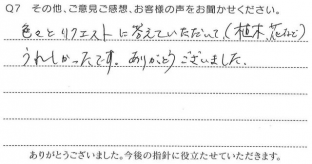 Q7 その他、ご意見ご感想、お客様の声をお聞かせください。
色々とリクエストに答えていただいて(植木、花など)
うれしかったです。ありがとうございました。
ありがとうございました。今後の指針に役立たせていただきます。